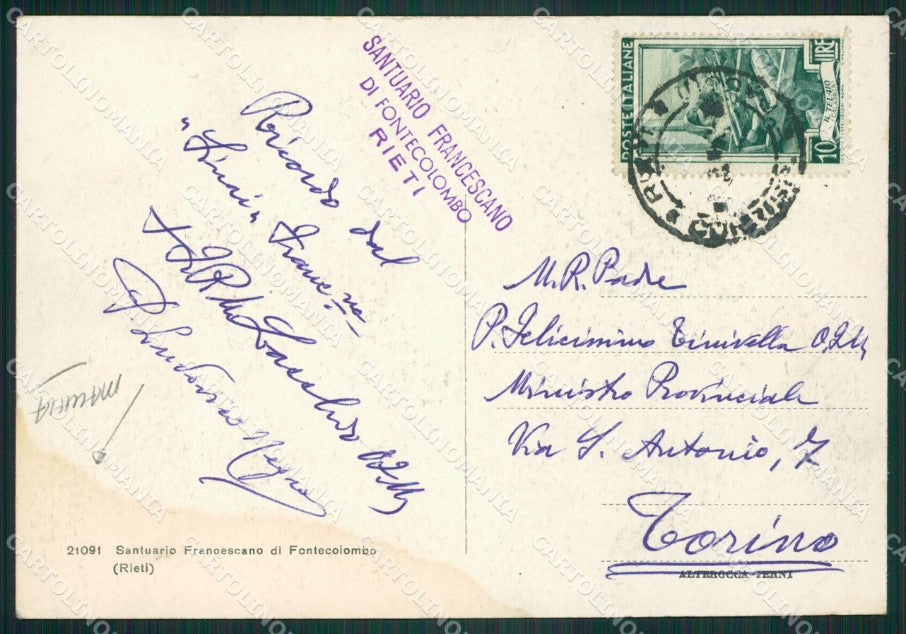 SANTUARIO FRANCESCANO
DI FONTECOLOMBO
RIETI
POSTE ITALIANE
LIRE
10
Ricordo dal
"Sinai" Franc.no
P. Ludovico
M. R. Padre
P. Felicissimo Tinivella O.F.M.
Ministro Provinciale
Via S. Antonio, 7
Torino
21091 Santuario Francescano di Fontecolombo
(Rieti)
ALTEROCCA-TERNI
CARTOLINOMANIA